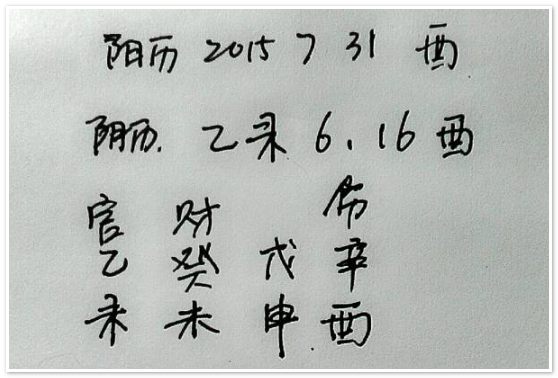 阳历 2015 7 31 酉
阴历. 乙未 6.16 酉
官 财 伤
乙 癸 戊 辛
未 未 申 酉